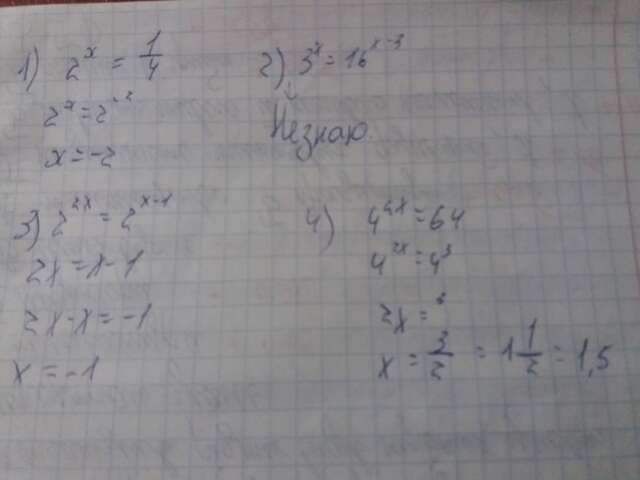 1) 2^x = 1/4
2^x = 2^-2
x = -2
2) 3^x = 16^x-3
Незнаю
3) 2^2x = 2^x-1
2x = x - 1
2x - x = -1
x = -1
4) 4^2x = 64
4^2x = 4^3
2x = 3
x = 3/2 = 1 1/2 = 1,5